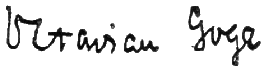 Octavian Goga